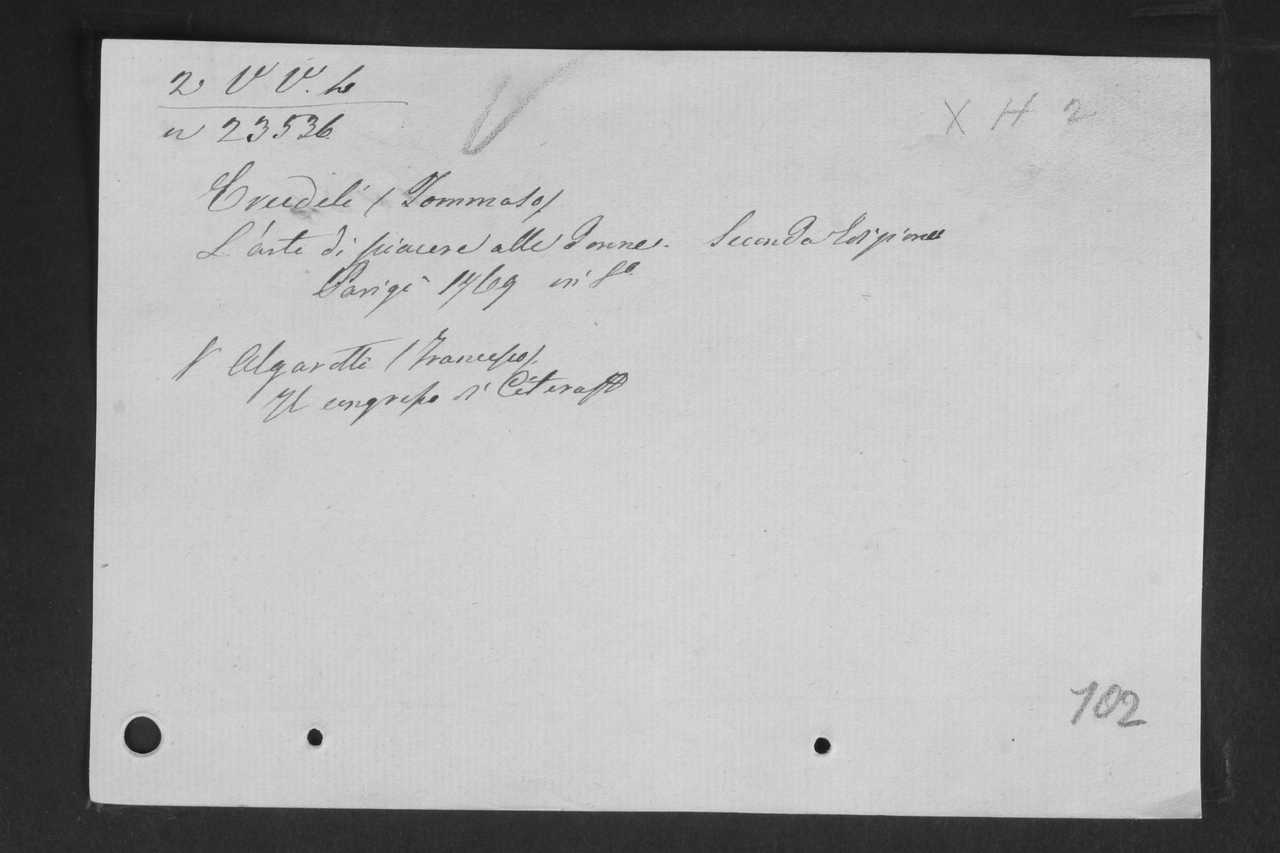 2 V V. 4
X H 2
n 23536
Crudeli (Tommaso)
L'arte di piacere alle donne. Seconda Edizione
Parigi 1769 in 8º
V Algarotti (Francesco)
Il congresso di Citera
102